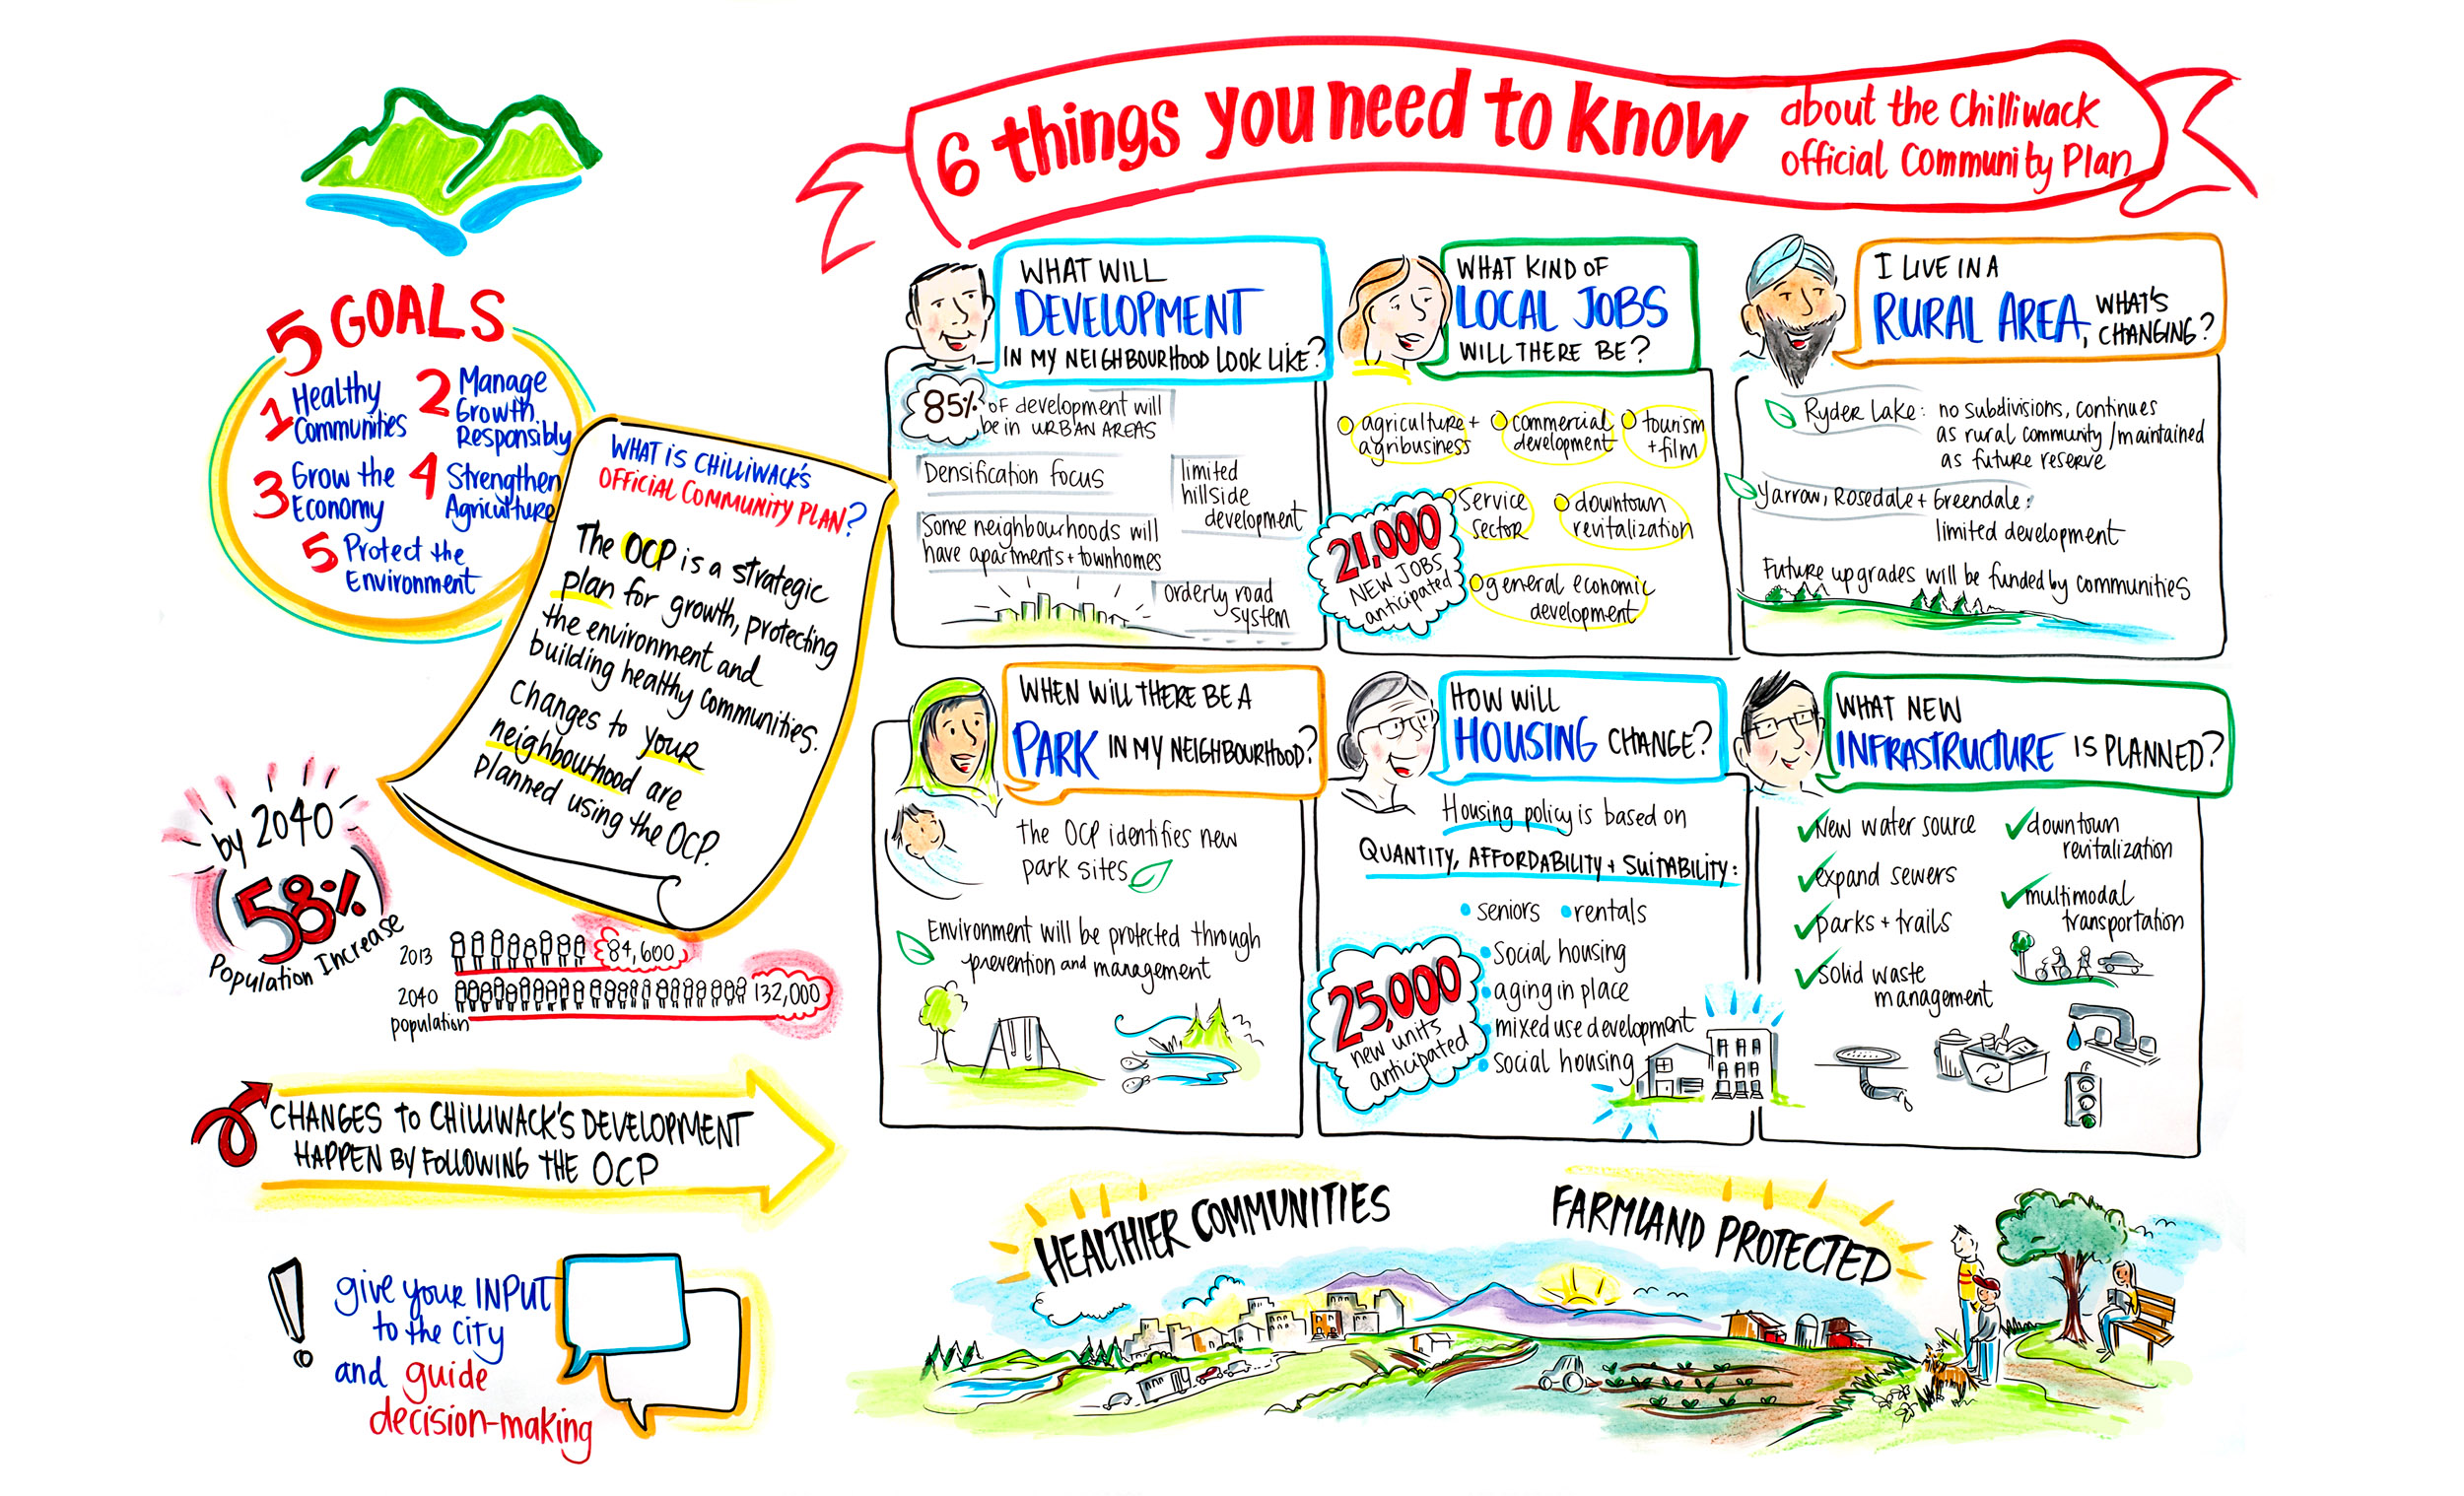 6 things you need to know
about the Chilliwack
official Community Plan
5 GOALS
1 Healthy
Communities
2 Manage
Growth
Responsibly
3 Grow the
Economy
4 Strengthen
Agriculture
5 Protect the
Environment
WHAT IS CHILLIWACK'S
OFFICIAL COMMUNITY PLAN?
The OCP is a strategic
plan for growth, protecting
the environment and
building healthy communities.
Changes to your
neighbourhood are
planned using the OCP.
by 2040
58%
Population Increase
2013
84,600
2040
132,000
population
CHANGES TO CHILLIWACK'S DEVELOPMENT
HAPPEN BY FOLLOWING THE OCP
give your INPUT
to the city
and guide
decision-making
WHAT WILL
DEVELOPMENT
IN MY NEIGHBOURHOOD LOOK LIKE?
85% of development will
be in URBAN AREAS
Densification focus
limited
hillside
development
Some neighbourhoods will
have apartments + townhomes
orderly road
system
WHAT KIND OF
LOCAL JOBS
WILL THERE BE?
agriculture +
agribusiness
commercial
development
tourism
+ film
service
sector
downtown
revitalization
21,000
NEW JOBS
anticipated
general economic
development
I LIVE IN A
RURAL AREA, WHAT'S
CHANGING?
Ryder Lake: no subdivisions, continues
as rural community / maintained
as future reserve
Yarrow, Rosedale + Greendale:
limited development
Future upgrades will be funded by communities
WHEN WILL THERE BE A
PARK IN MY NEIGHBOURHOOD?
the OCP identifies new
park sites
Environment will be protected through
prevention and management
HOW WILL
HOUSING CHANGE?
Housing policy is based on
QUANTITY, AFFORDABILITY + SUITABILITY:
seniors
rentals
Social housing
aging in place
mixed use development
Social housing
25,000
new units
anticipated
WHAT NEW
INFRASTRUCTURE IS PLANNED?
New water source
expand sewers
parks + trails
solid waste
management
downtown
revitalization
multimodal
transportation
HEALTHIER COMMUNITIES
FARMLAND PROTECTED